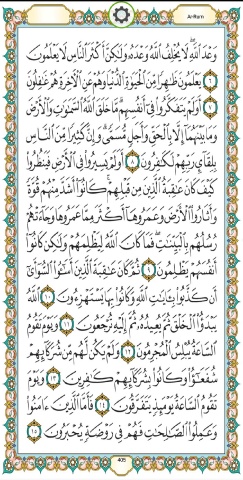 Ar-Rum
وَعْدَ ٱللَّهِ لَا يُخْلِفُ ٱللَّهُ وَعْدَهُۥ وَلَٰكِنَّ أَكْثَرَ ٱلنَّاسِ لَا يَعْلَمُونَ
٦ يَعْلَمُونَ ظَٰهِرًا مِّنَ ٱلْحَيَوٰةِ ٱلدُّنْيَا وَهُمْ عَنِ ٱلْءَاخِرَةِ هُمْ غَٰفِلُونَ
٧ أَوَلَمْ يَتَفَكَّرُوا۟ فِىٓ أَنفُسِهِم مَّا خَلَقَ ٱللَّهُ ٱلسَّمَٰوَٰتِ وَٱلْأَرْضَ
وَمَا بَيْنَهُمَآ إِلَّا بِٱلْحَقِّ وَأَجَلٍ مُّسَمًّى وَإِنَّ كَثِيرًا مِّنَ ٱلنَّاسِ
بِلِقَآئِ رَبِّهِمْ لَكَٰفِرُونَ ٨ أَوَلَمْ يَسِيرُوا۟ فِى ٱلْأَرْضِ فَيَنظُرُوا۟
كَيْفَ كَانَ عَٰقِبَةُ ٱلَّذِينَ مِن قَبْلِهِمْ كَانُوٓا۟ أَشَدَّ مِنْهُمْ قُوَّةً
وَأَثَارُوا۟ ٱلْأَرْضَ وَعَمَرُوهَآ أَكْثَرَ مِمَّا عَمَرُوهَا وَجَآءَتْهُمْ
رُسُلُهُم بِٱلْبَيِّنَٰتِ فَمَا كَانَ ٱللَّهُ لِيَظْلِمَهُمْ وَلَٰكِن كَانُوٓا۟
أَنفُسَهُمْ يَظْلِمُونَ ٩ ثُمَّ كَانَ عَٰقِبَةَ ٱلَّذِينَ أَسَٰٓـُٔوا۟ ٱلسُّوٓأَىٰٓ
أَن كَذَّبُوا۟ بِـَٔايَٰتِ ٱللَّهِ وَكَانُوا۟ بِهَا يَسْتَهْزِءُونَ ١٠ ٱللَّهُ
يَبْدَؤُا۟ ٱلْخَلْقَ ثُمَّ يُعِيدُهُۥ ثُمَّ إِلَيْهِ تُرْجَعُونَ ١١ وَيَوْمَ تَقُومُ
ٱلسَّاعَةُ يُبْلِسُ ٱلْمُجْرِمُونَ ١٢ وَلَمْ يَكُن لَّهُم مِّن شُرَكَآئِهِمْ
شُفَعَٰٓؤُا۟ وَكَانُوا۟ بِشُرَكَآئِهِمْ كَٰفِرِينَ ١٣ وَيَوْمَ
تَقُومُ ٱلسَّاعَةُ يَوْمَئِذٍ يَتَفَرَّقُونَ ١٤ فَأَمَّا ٱلَّذِينَ ءَامَنُوا۟
وَعَمِلُوا۟ ٱلصَّٰلِحَٰتِ فَهُمْ فِى رَوْضَةٍ يُحْبَرُونَ ١٥
405